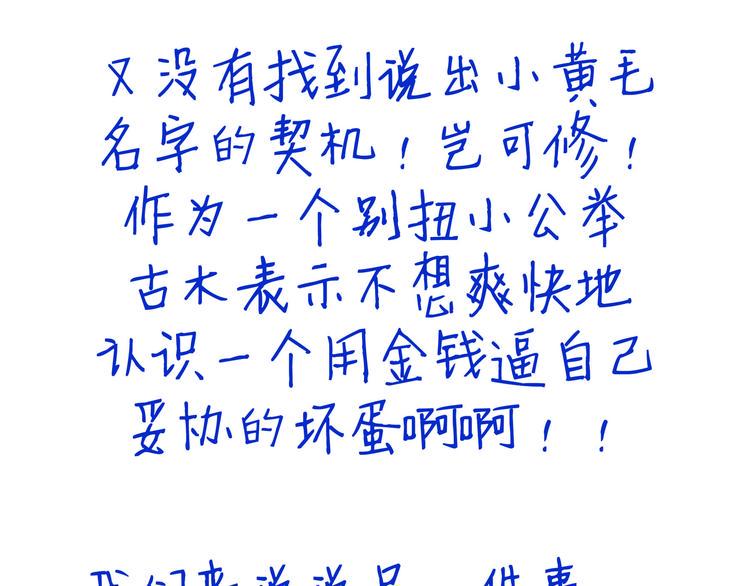 又没有找到说出小黄毛
名字的契机！岂可修！
作为一个别扭小公举
古木表示不想爽快地
认识一个用金钱逼自己
妥协的坏蛋啊啊！！